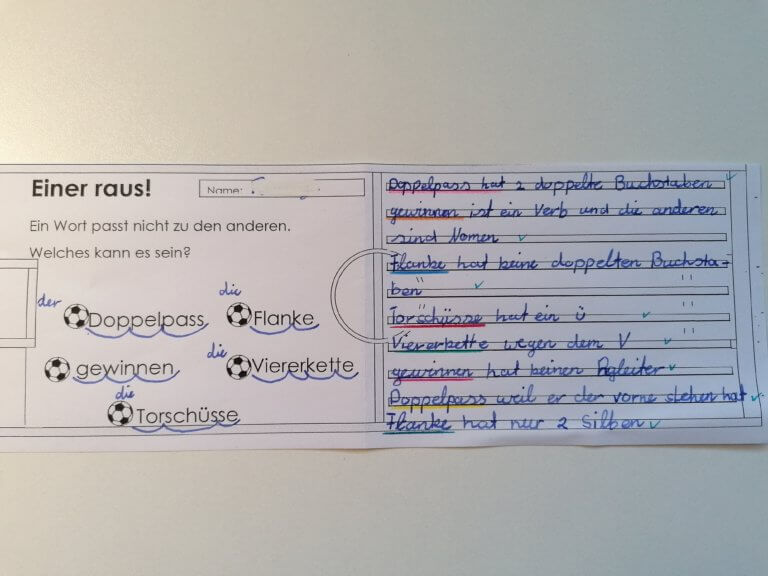 Einer raus!
Name:
Ein Wort passt nicht zu den anderen.
Welches kann es sein?
der Doppelpass
die Flanke
gewinnen
die Viererkette
die Torschüsse
Doppelpass hat 2 doppelte Buchstaben
gewinnen ist ein Verb und die anderen
sind Nomen
Flanke hat keine doppelten Buchsta-
ben
Torschüsse hat ein ü
Viererkette wegen dem V
gewinnen hat keinen Bgleiter
Doppelpass weil er der vorne stehen hat
Flanke hat nur 2 Silben